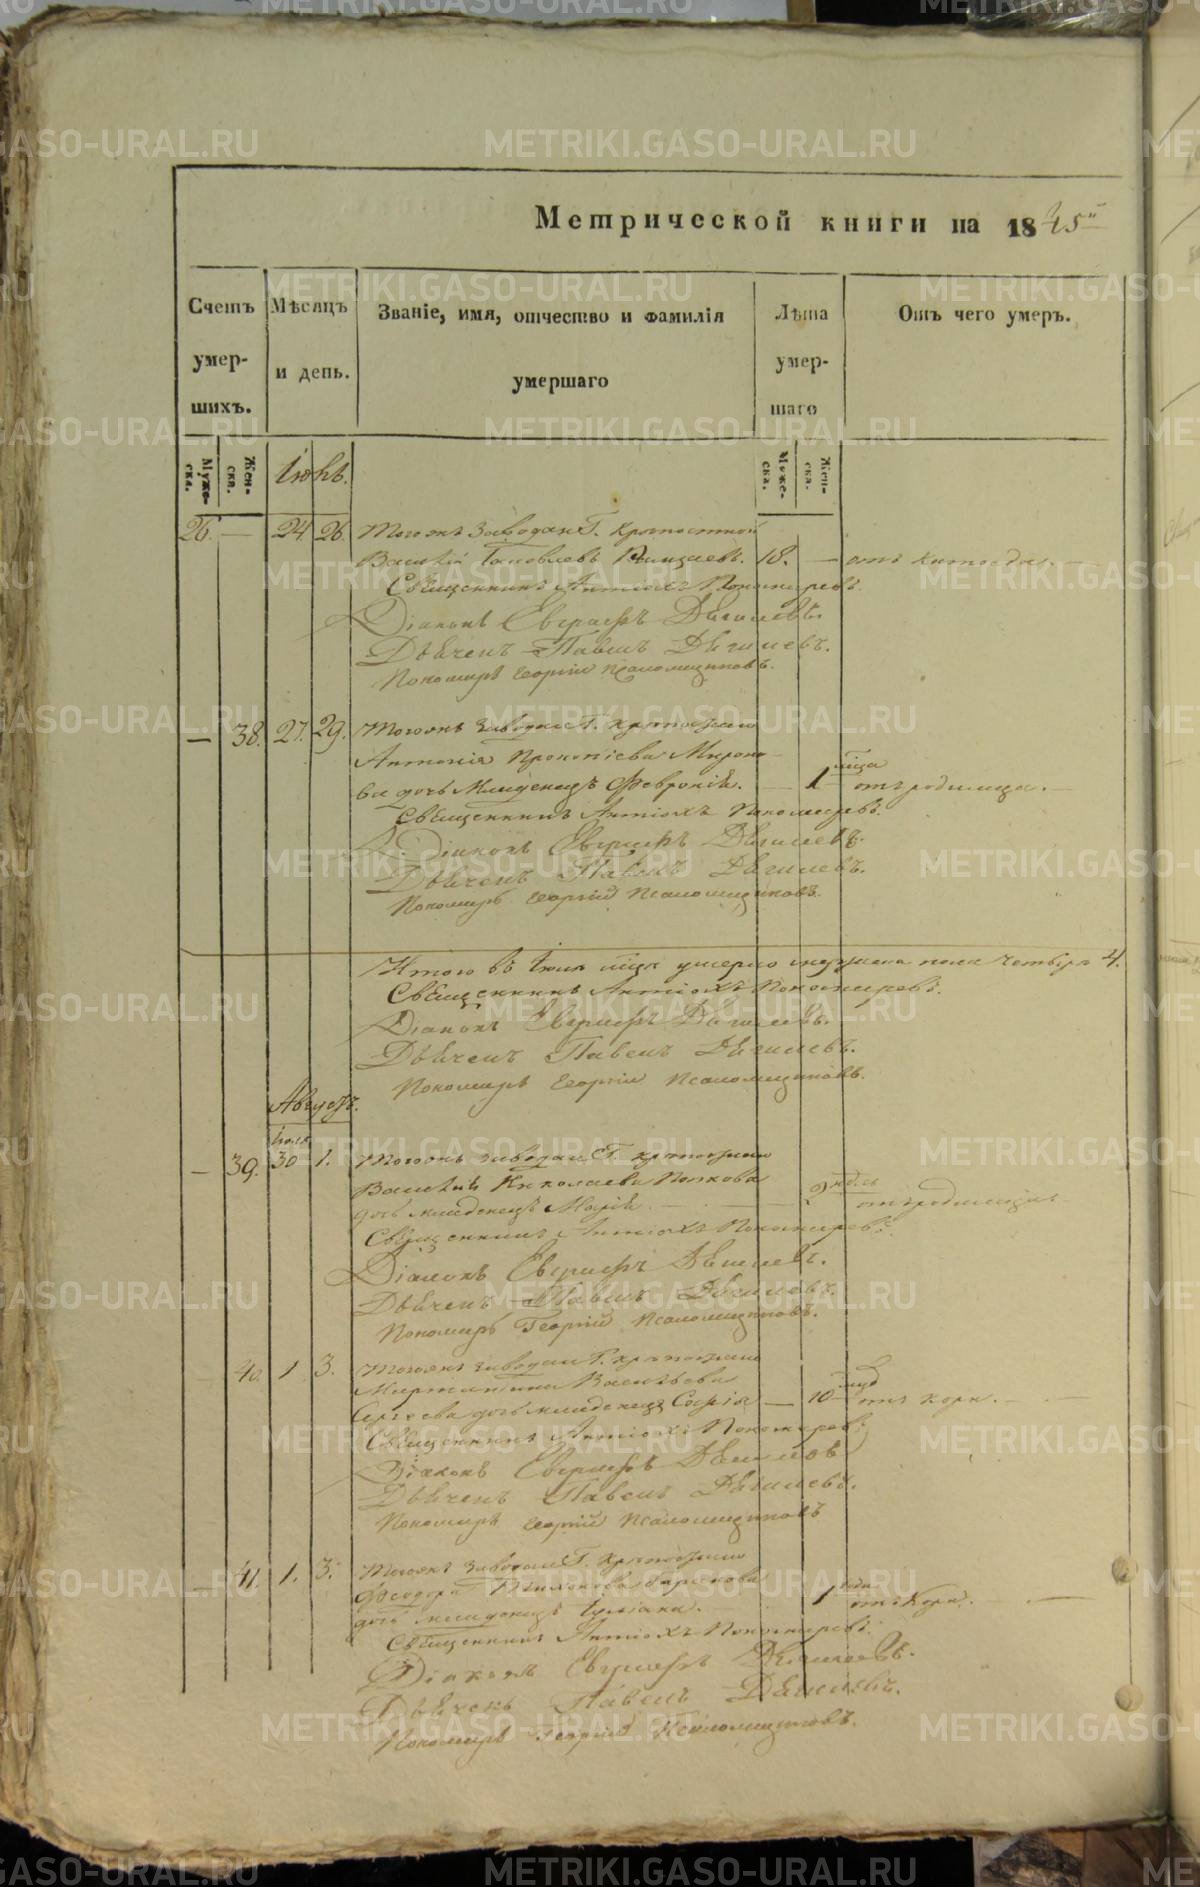 Метрической книги на 1845й
Счетъ умер-шихъ.
Мѣсяцъ и день.
Званіе, имя, отчество и фамилія умершаго
Лѣта умер-шаго
Отъ чего умеръ.
Муже-ска.
Жен-ска.
Муже-ска.
Жен-ска.
26. — 24 26. Тогожъ завода Г. крѣпостной
Василій 18. —
Священникъ Антіохъ Пономаревъ.
Діаконъ Евграфъ Дягилевъ.
Дьячекъ Павелъ Дягилевъ.
Пономарь Георгій Псаломщиковъ.
— 38. 27. 29. Тогожъ завода Г. крѣпостнаго
Антонія Прокопіева Мироно-
ва дочь младенецъ Февронія. — 1 мѣсяца отъ родимца. —
Священникъ Антіохъ Пономаревъ.
Діаконъ Евграфъ Дягилевъ.
Дьячекъ Павелъ Дягилевъ.
Пономарь Георгій Псаломщиковъ.
Итого въ умерло мужеска пола четыре 4.
Священникъ Антіохъ Пономаревъ.
Діаконъ Евграфъ Дягилевъ.
Дьячекъ Павелъ Дягилевъ.
Пономарь Георгій Псаломщиковъ.
Августъ.
Іюля
— 39. 30 1. Тогожъ завода Г. крѣпостнаго
Василія Николаева Попкова
дочь младенецъ Марія. — 2 недѣль отъ родимца.
Священникъ Антіохъ Пономаревъ.
Діаконъ Евграфъ Дягилевъ.
Дьячекъ Павелъ Дягилевъ.
Пономарь Георгій Псаломщиковъ.
40. 1 3. Тогожъ завода Г. крѣпостнаго
Васильева
Сергѣева дочь младенецъ Софія — 10 отъ кори. —
Священникъ Антіохъ Пономаревъ
Діаконъ Евграфъ Дягилевъ
Дьячекъ Павелъ Дягилевъ.
Пономарь Георгій Псаломщиковъ
— 41. 1. 3. Тогожъ завода Г. крѣпостнаго
Феодора Тихонова
дочь младенецъ Іуліана. 1 года отъ кори. —
Священникъ Антіохъ Пономаревъ.
Діаконъ Евграфъ Дягилевъ.
Дьячекъ Павелъ Дягилевъ.
Пономарь Георгій Псаломщиковъ.
METRIKI.GASO-URAL.RU